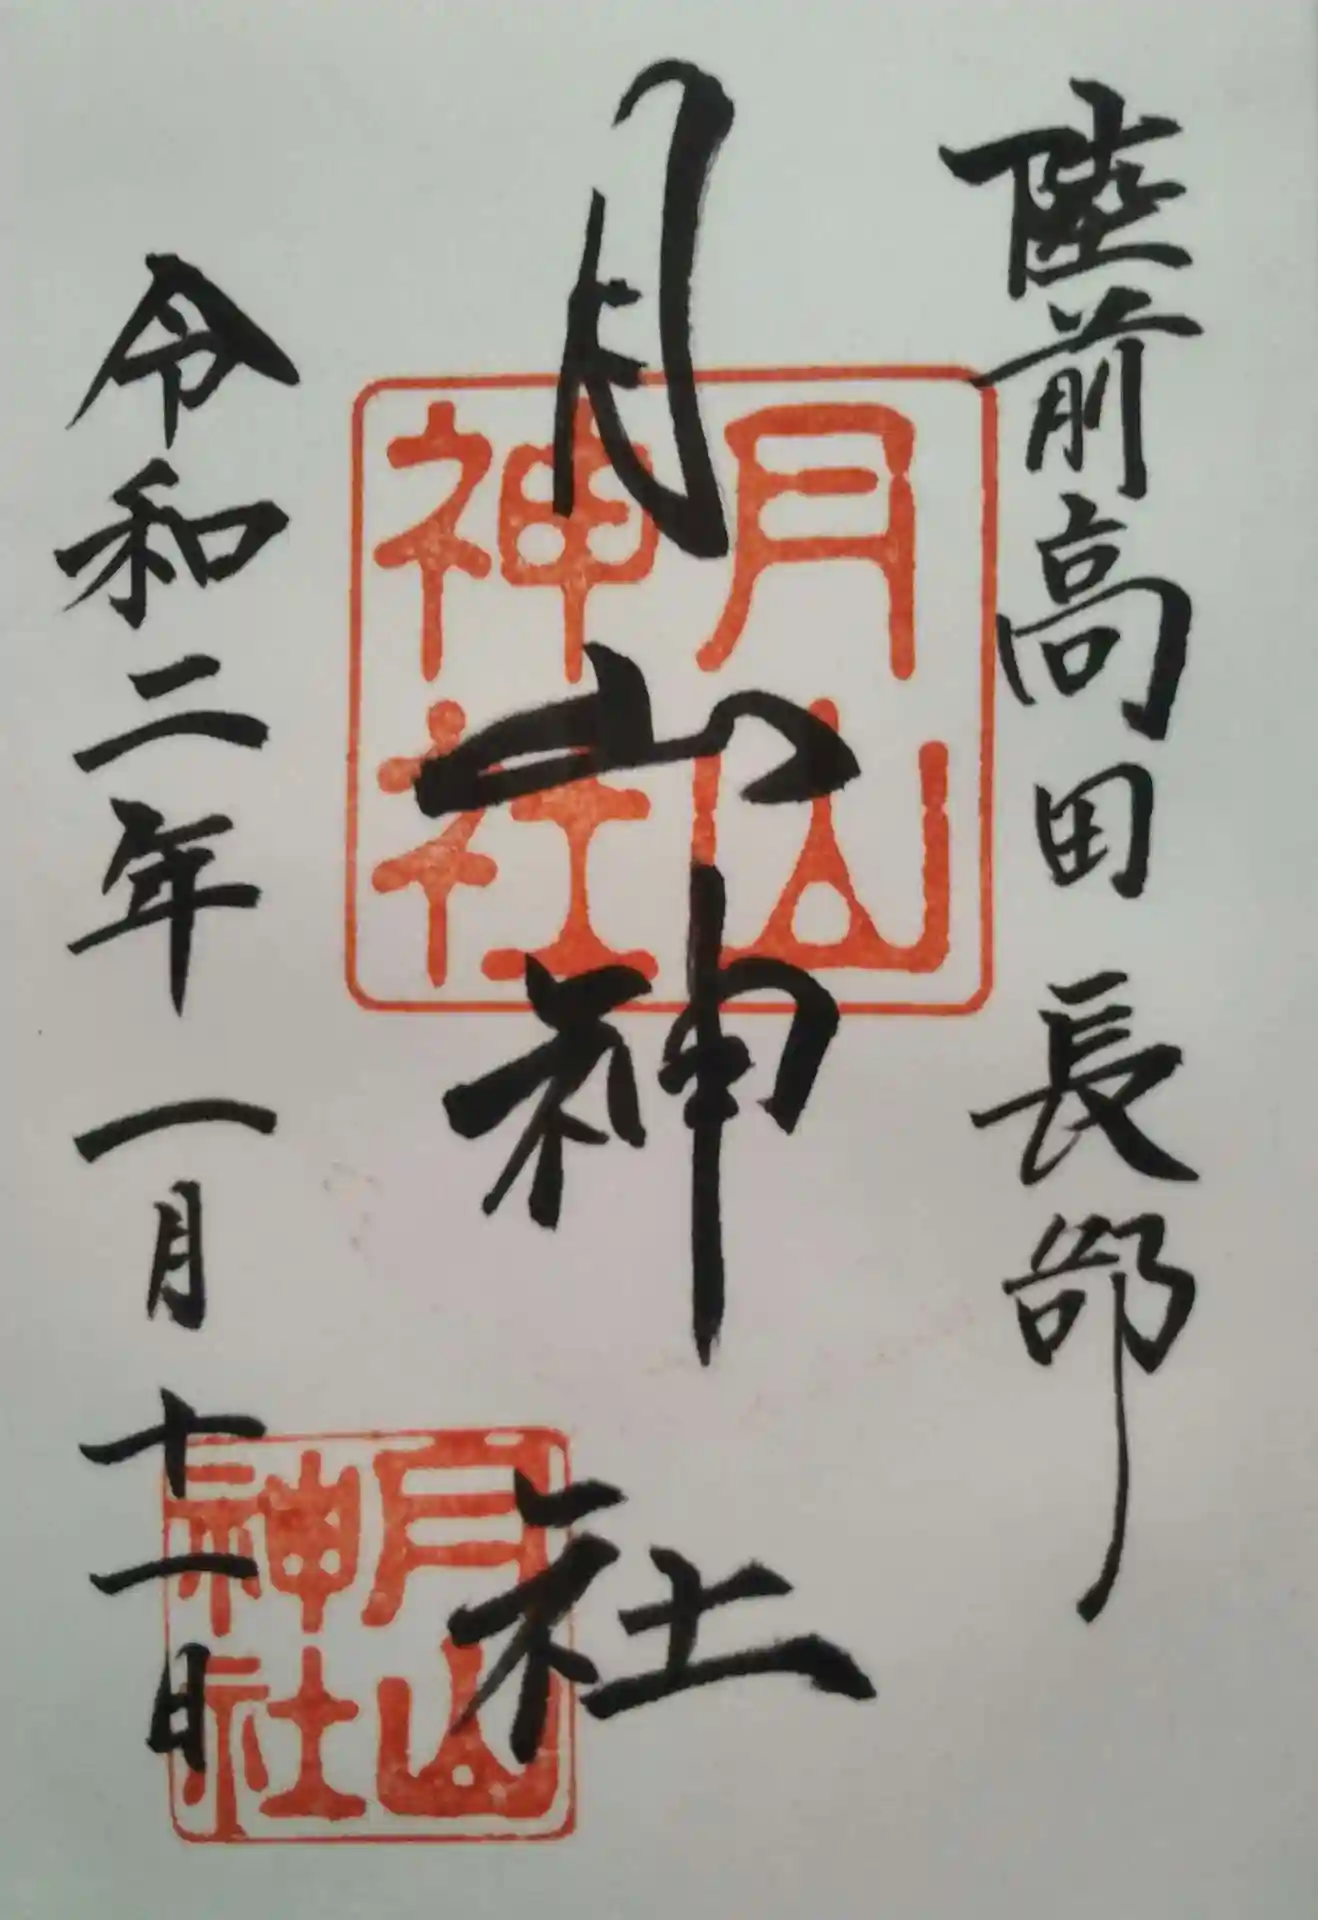 陸前高田長部
月山神社
月山
神社
令和二年一月十一日
月山
神社